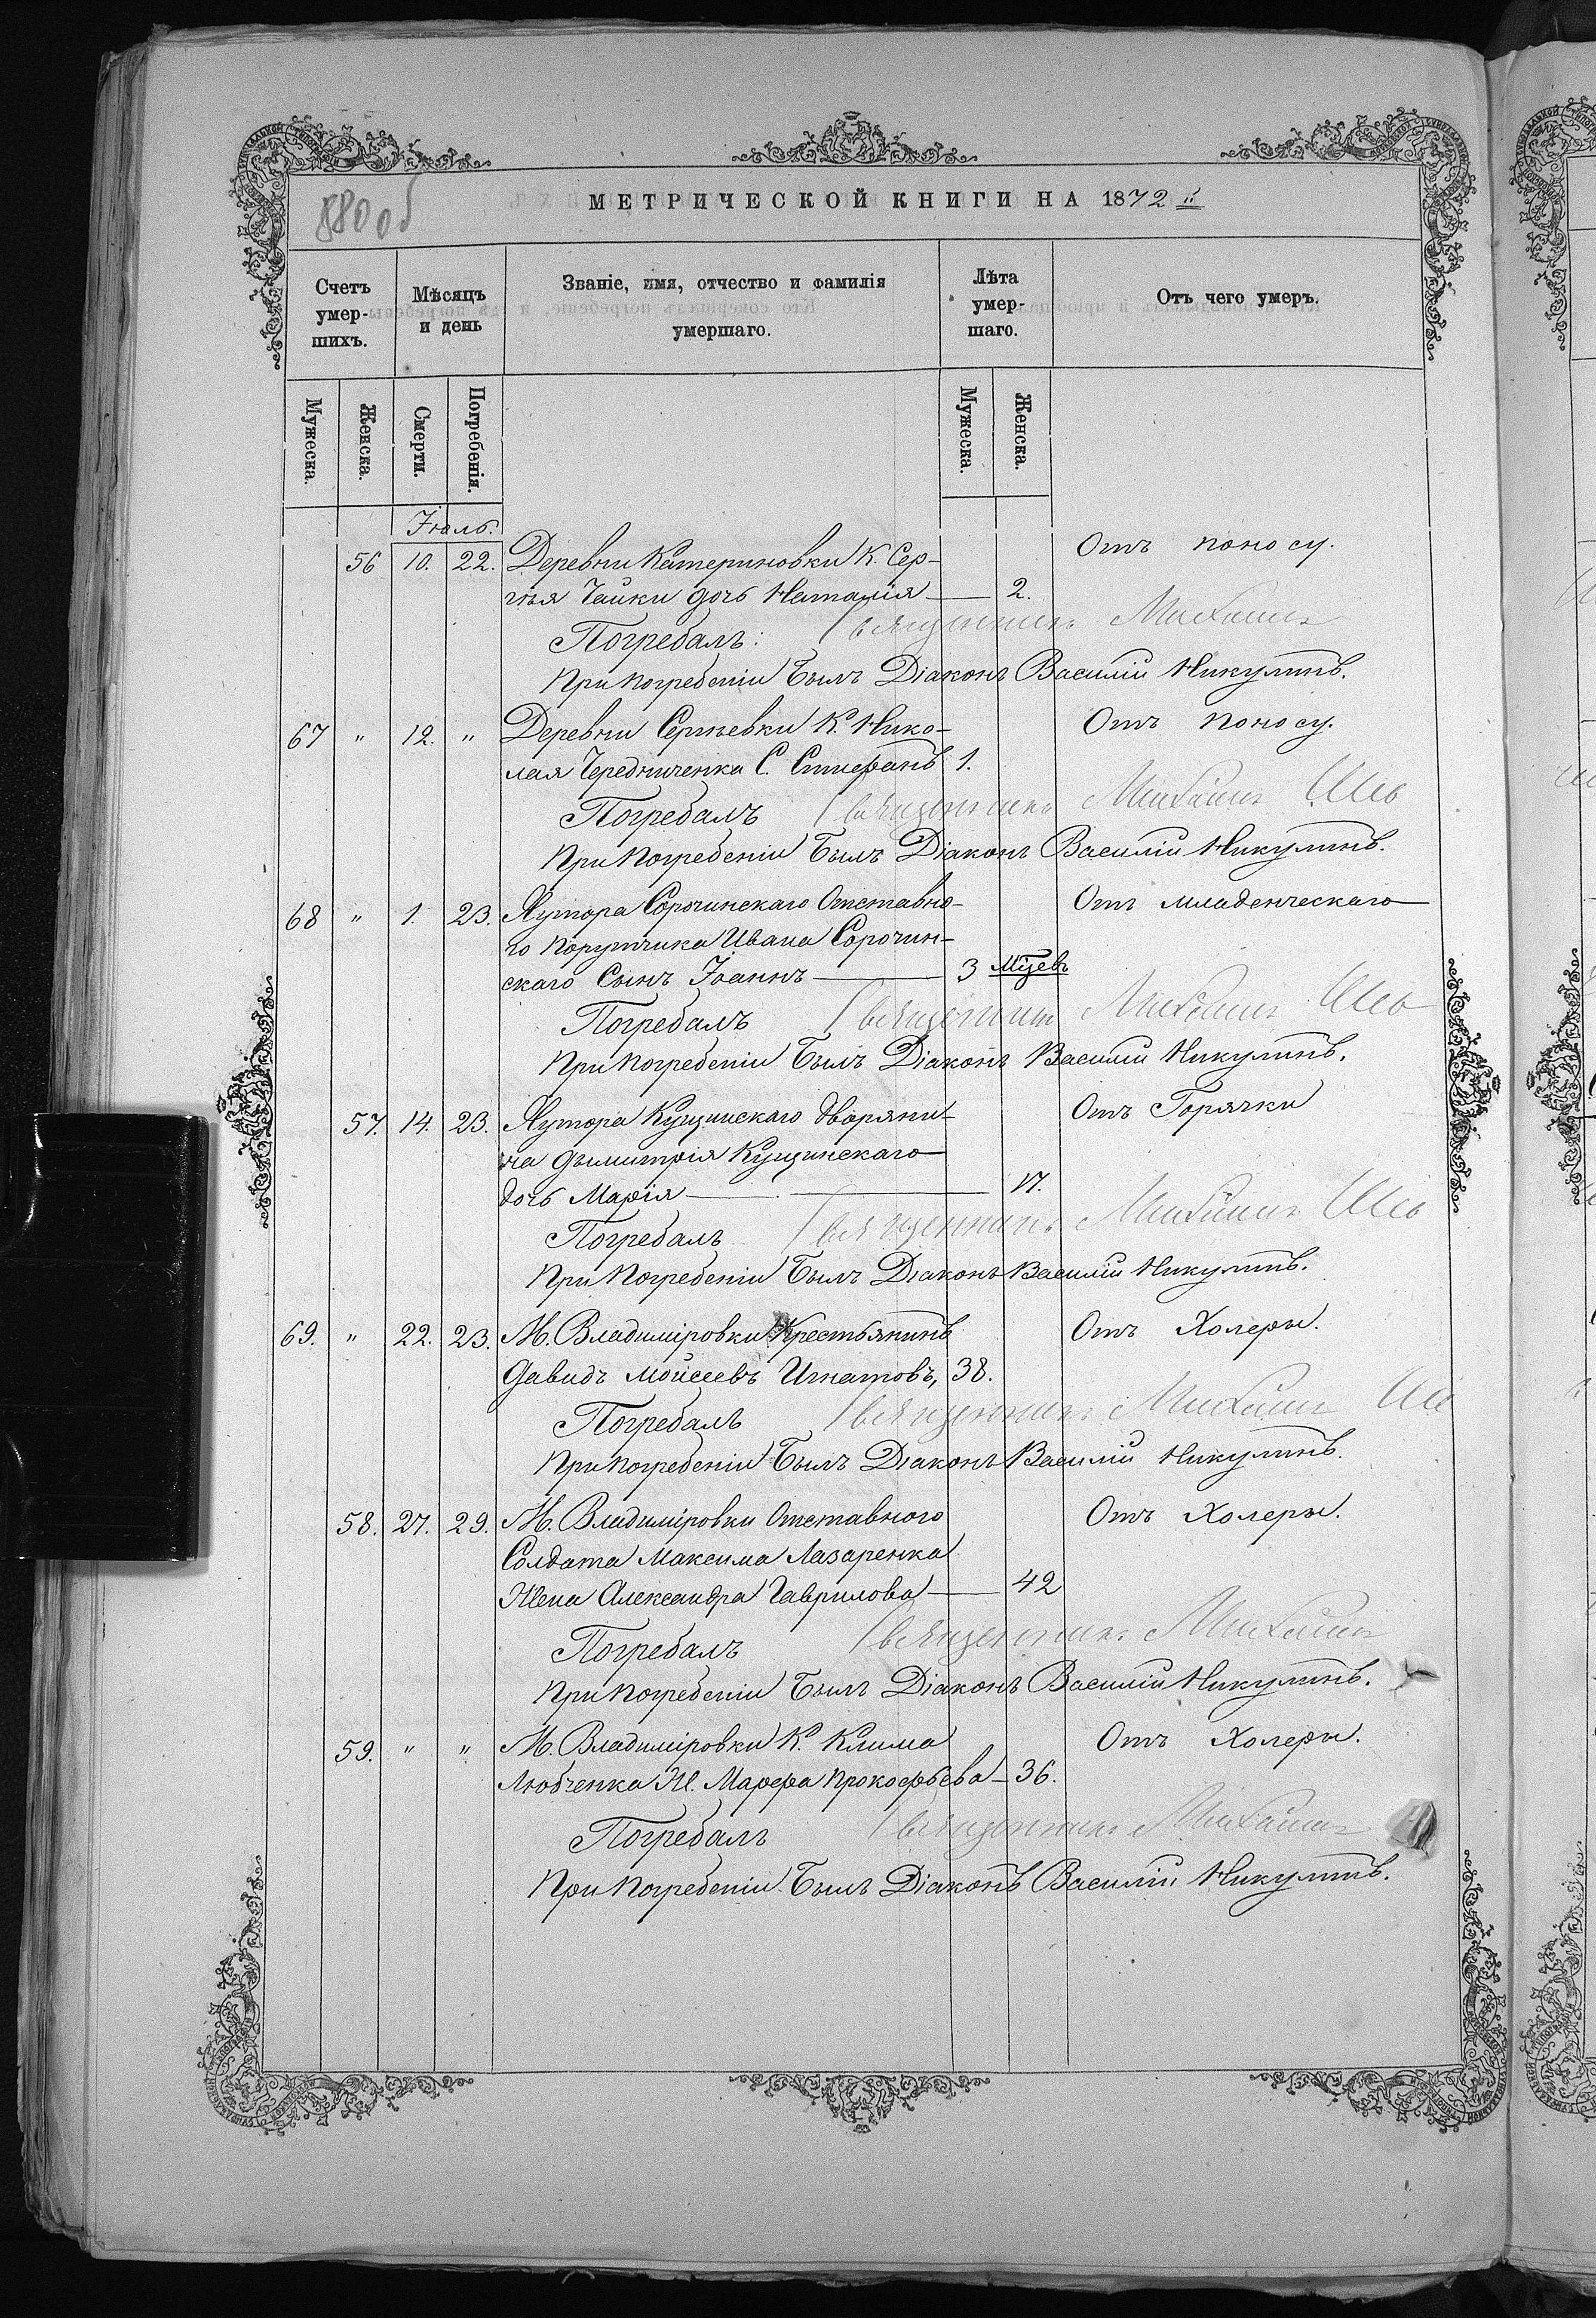 880 об
МЕТРИЧЕСКОЙ КНИГИ НА 1872 й
Счетъ умер-шихъ. Мѣсяцъ и день Званіе, имя, отчество и фамилія умершаго. Лѣта умер-шаго. Отъ чего умеръ.
Мужеска. Женска. Смерти. Погребенія. Мужеска. Женска.
Іюль.
56 10. 22. Деревни Катериновки К. Сер- Отъ поносу.
гѣя Чайки дочь Наталія — 2.
Погребалъ: Священникъ Михаилъ
При погребеніи Былъ Діаконъ Василій Никулинъ.
67 " 12. " Деревни Сергѣевки К. Нико- Отъ поносу.
лая Чередниченка С. Стефанъ 1.
Погребалъ Священникъ Михаилъ
При погребеніи Былъ Діаконъ Василій Никулинъ.
68 " 1. 23. Хутора Сорочинскаго Отставно- Отъ младенческаго
го порутчика Ивана Сорочин-
скаго Сынъ Іоаннъ — 3 Мцевъ
Погребалъ Священникъ Михаилъ
При погребеніи Былъ Діаконъ Василій Никулинъ.
57. 14. 23. Хутора Кущинскаго дворяни- Отъ Горячки
на дымитрія Кущинскаго
дочь Марія — 17.
Погребалъ Священникъ Михаилъ
При Погребеніи Былъ Діаконъ Василій Никулинъ.
69. " 22. 23. М. Владиміровки Крестьянинъ Отъ Холеры.
Давидъ Мойсеевъ Игнатовъ, 38.
Погребалъ Священникъ Михаилъ
При погребеніи Былъ Діаконъ Василій Никулинъ.
58. 27. 29. М. Владиміровки Отставного Отъ Холеры.
Солдата Максима Лазаренка
Жена Александра Гаврилова — 42
Погребалъ Священникъ Михаилъ
При погребеніи Былъ Діаконъ Василій Никулинъ.
59. " " М. Владиміровки К. Клима Отъ Холеры.
Любченка Ж. Марфа Прокофьева — 36.
Погребалъ Священникъ Михаилъ
При Погребеніи Былъ Діаконъ Василій Никулинъ.